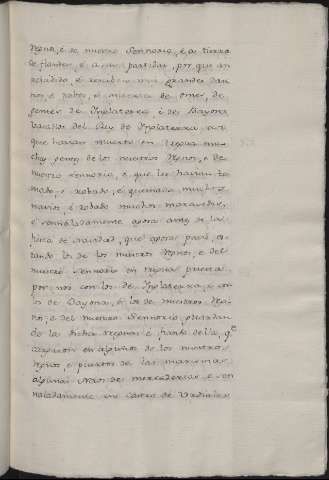 Regnos, é de nuestro Sennorio, é a tierra
de flandes, é a sus partidas, por que an
rescibido, é resciben muy grandes dan
nos, é robos, é muertes de omes, de
gentes de Inglaterra é de Bayona
vasallos del Rey de Inglaterra, asi
que havian muerto en tregua mu
chas gentes de los nuestros Regnos, é de
nuestro sennorio, é que les havian to
mado, é robado, é quemado muchos
navios, é robado muchos maravedis,
é sennaladamente agora antes de la
fiesta de navidad, que agora pasó, es
tando los de los nuestros Regnos, é del
nuestro Sennorio en tregua puesta
por nos con los de Inglaterra, é con
los de Bayona, é los de nuestros Reg
nos, é del nuestro Sennorio, fiandose
de la dicha tregua, é fiando de la qe
cargaron en algunos de los nuestros
Regnos, é puertos de las marismas
algunas Naos de mercaderias, é sen
naladamente en Castro de Urdiales